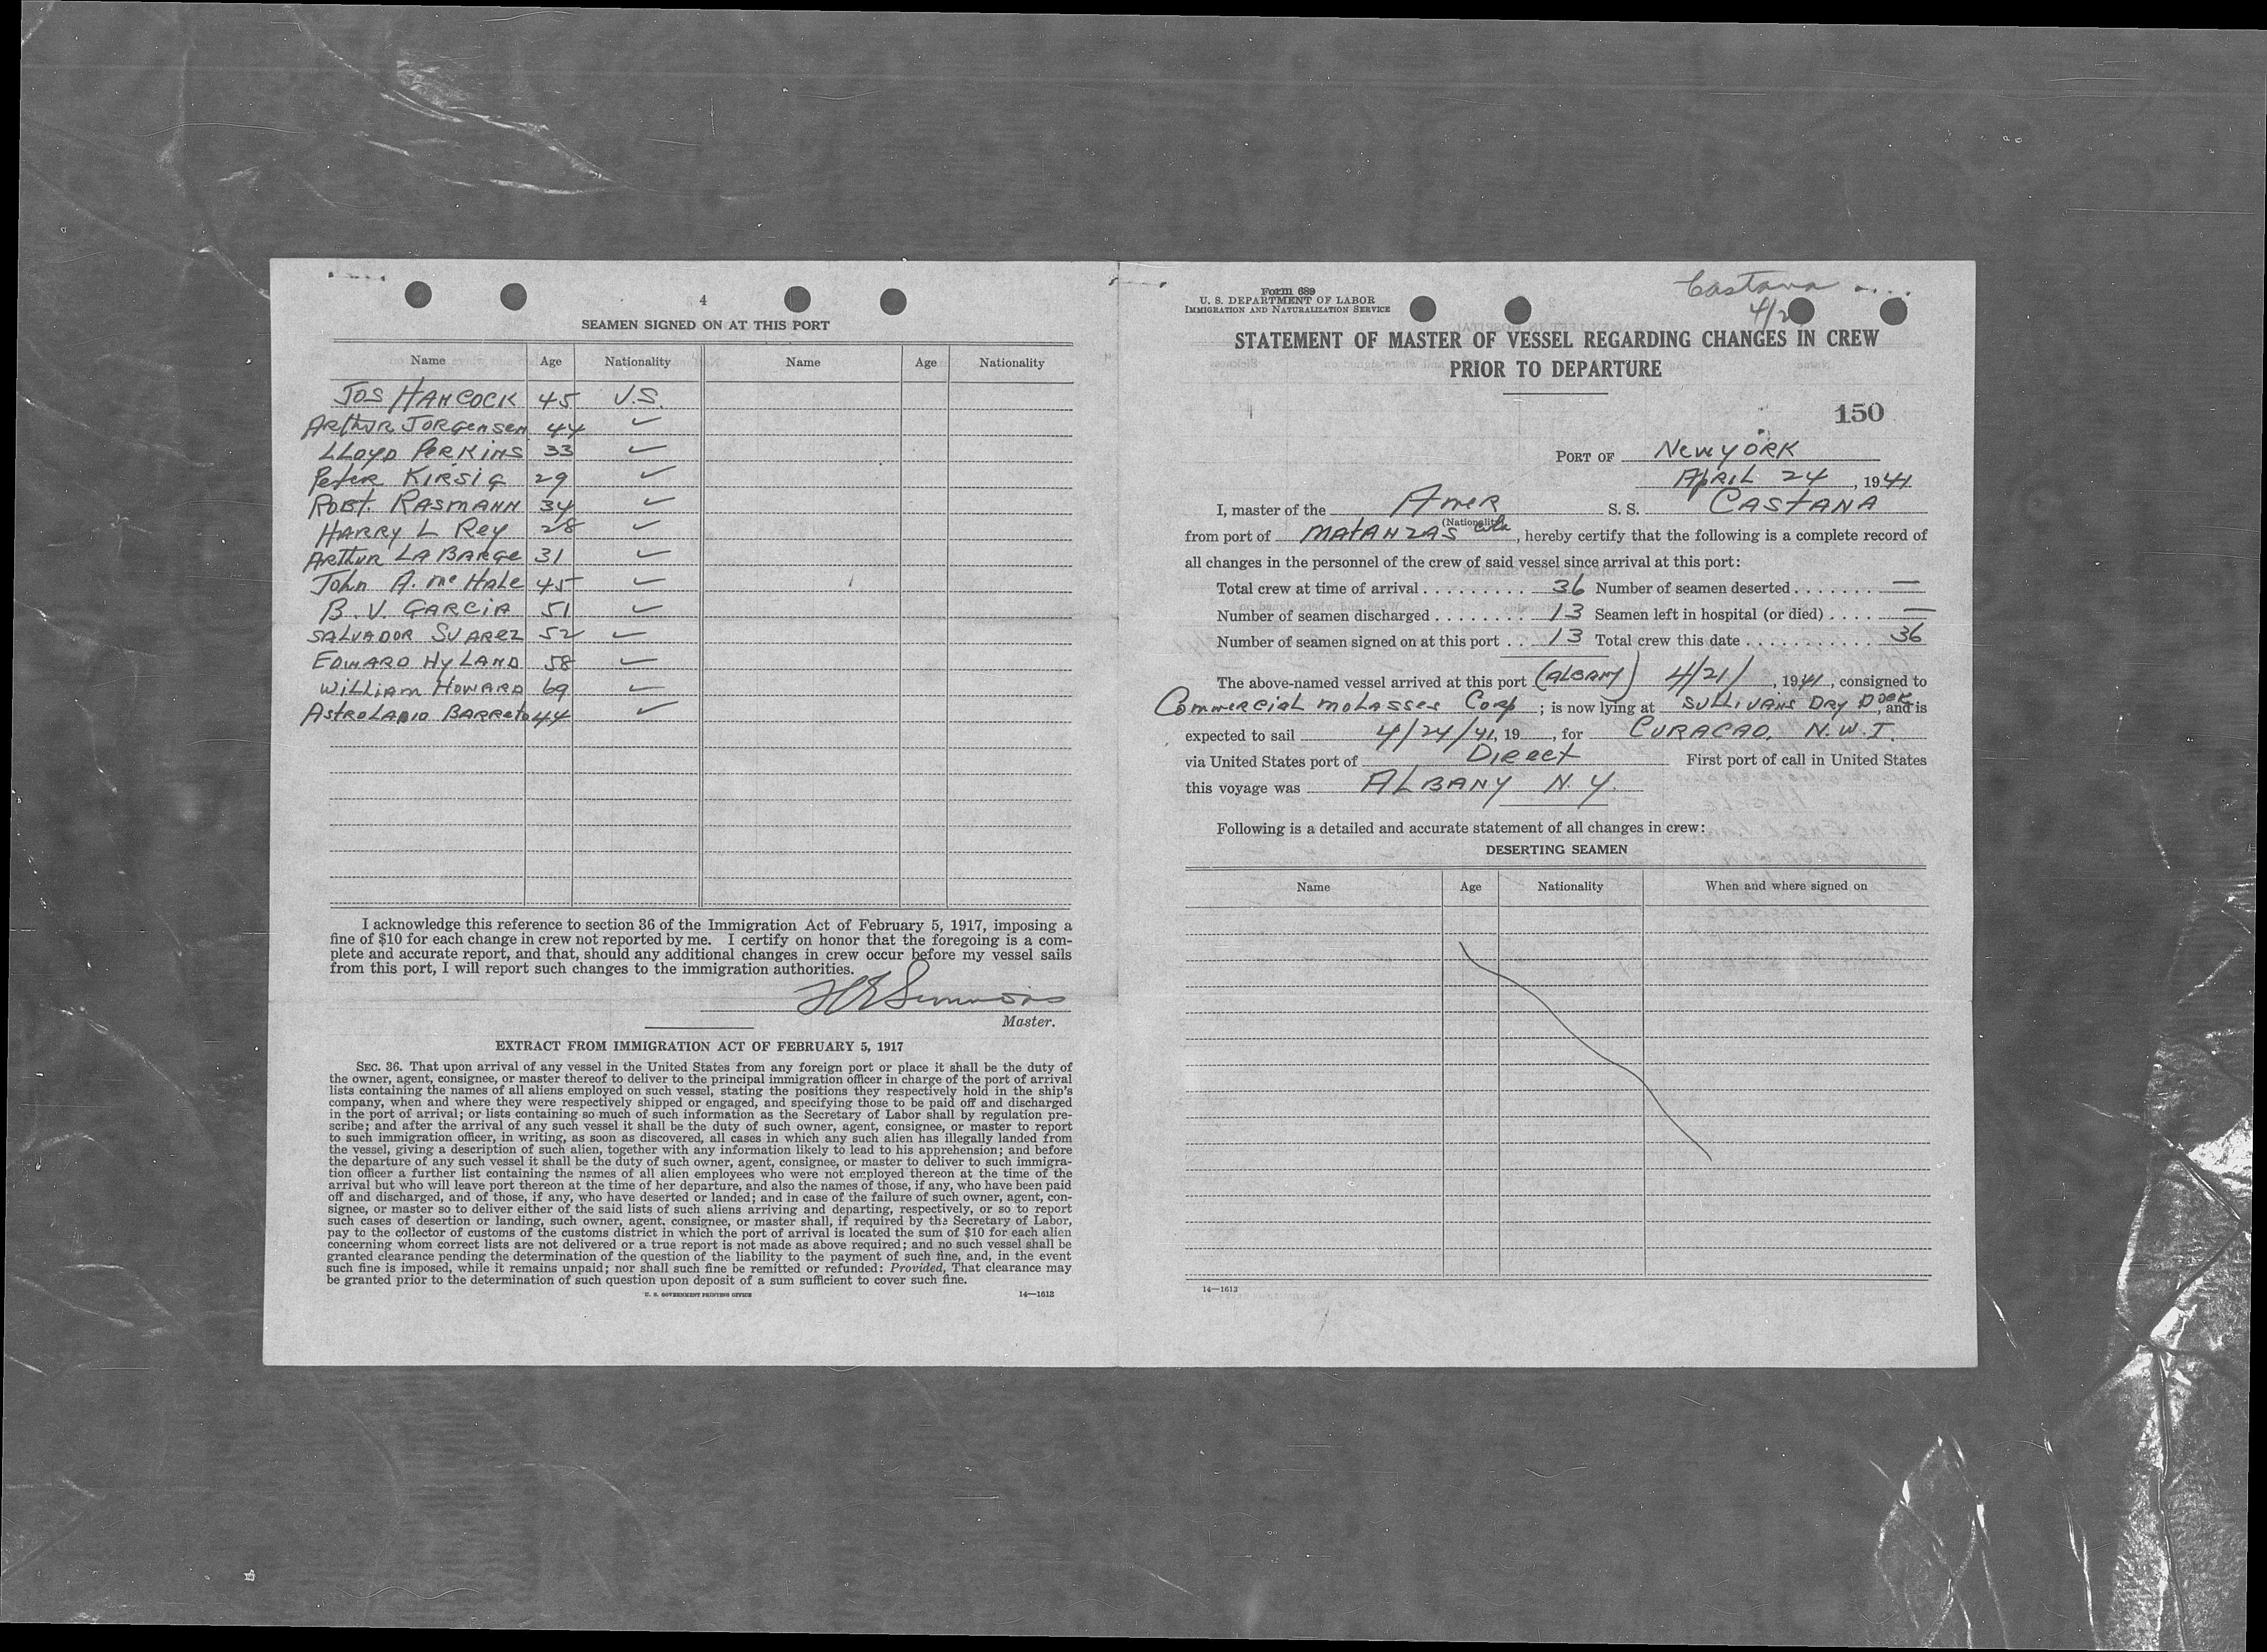 4
SEAMEN SIGNED ON AT THIS PORT
Name Age Nationality Name Age Nationality
JOS HANCOCK 45 U.S.
ARthUR JORGENSEN 44 ✓
LLOYD PERKINS 33 ✓
Peter KIRSIG 29 ✓
ROBT. RASMANN 34 ✓
HARRY L Rey 28 ✓
ARTHUR LA BARGE 31 ✓
John A. Mc HALE 45 ✓
B. V. GARCIA 51 ✓
SALVADOR SUAREZ 52 ✓
EDWARD HYLAND 58 ✓
WILLIAM HOWARD 69 ✓
ASTROLADIO BARRETO 44 ✓
I acknowledge this reference to section 36 of the Immigration Act of February 5, 1917, imposing a
fine of $10 for each change in crew not reported by me. I certify on honor that the foregoing is a com-
plete and accurate report, and that, should any additional changes in crew occur before my vessel sails
from this port, I will report such changes to the immigration authorities.
Simmons
Master.
EXTRACT FROM IMMIGRATION ACT OF FEBRUARY 5, 1917
SEC. 36. That upon arrival of any vessel in the United States from any foreign port or place it shall be the duty of
the owner, agent, consignee, or master thereof to deliver to the principal immigration officer in charge of the port of arrival
lists containing the names of all aliens employed on such vessel, stating the positions they respectively hold in the ship's
company, when and where they were respectively shipped or engaged, and specifying those to be paid off and discharged
in the port of arrival; or lists containing so much of such information as the Secretary of Labor shall by regulation pre-
scribe; and after the arrival of any such vessel it shall be the duty of such owner, agent, consignee, or master to report
to such immigration officer, in writing, as soon as discovered, all cases in which any such alien has illegally landed from
the vessel, giving a description of such alien, together with any information likely to lead to his apprehension; and before
the departure of any such vessel it shall be the duty of such owner, agent, consignee, or master to deliver to such immigra-
tion officer a further list containing the names of all alien employees who were not employed thereon at the time of the
arrival but who will leave port thereon at the time of her departure, and also the names of those, if any, who have been paid
off and discharged, and of those, if any, who have deserted or landed; and in case of the failure of such owner, agent, con-
signee, or master so to deliver either of the said lists of such aliens arriving and departing, respectively, or so to report
such cases of desertion or landing, such owner, agent, consignee, or master shall, if required by the Secretary of Labor,
pay to the collector of customs of the customs district in which the port of arrival is located the sum of $10 for each alien
concerning whom correct lists are not delivered or a true report is not made as above required; and no such vessel shall be
granted clearance pending the determination of the question of the liability to the payment of such fine, and, in the event
such fine is imposed, while it remains unpaid; nor shall such fine be remitted or refunded: Provided, That clearance may
be granted prior to the determination of such question upon deposit of a sum sufficient to cover such fine.
U. S. GOVERNMENT PRINTING OFFICE 14—1613
Castana
4/2
Form 689
U. S. DEPARTMENT OF LABOR
IMMIGRATION AND NATURALIZATION SERVICE
STATEMENT OF MASTER OF VESSEL REGARDING CHANGES IN CREW
PRIOR TO DEPARTURE
150
PORT OF New YORK
APRIL 24, 1941
I, master of the AmeR S. S. CASTANA
(Nationality)
from port of MATANZAS Cuba, hereby certify that the following is a complete record of
all changes in the personnel of the crew of said vessel since arrival at this port:
Total crew at time of arrival . . . . . . . . . 36 Number of seamen deserted . . . . . . . . —
Number of seamen discharged . . . . . . . . 13 Seamen left in hospital (or died) . . . . —
Number of seamen signed on at this port . . 13 Total crew this date . . . . . . . . . . . . 36
The above-named vessel arrived at this port (ALBANY) 4/21/, 1941, consigned to
Commercial Molasses Corp; is now lying at SULLIVANS DRY DOCK, and is
expected to sail 4/24/41, 19 , for CURACAO, N.W.I.
via United States port of DIRect First port of call in United States
this voyage was ALBANY N.Y.
Following is a detailed and accurate statement of all changes in crew:
DESERTING SEAMEN
Name Age Nationality When and where signed on
14—1613